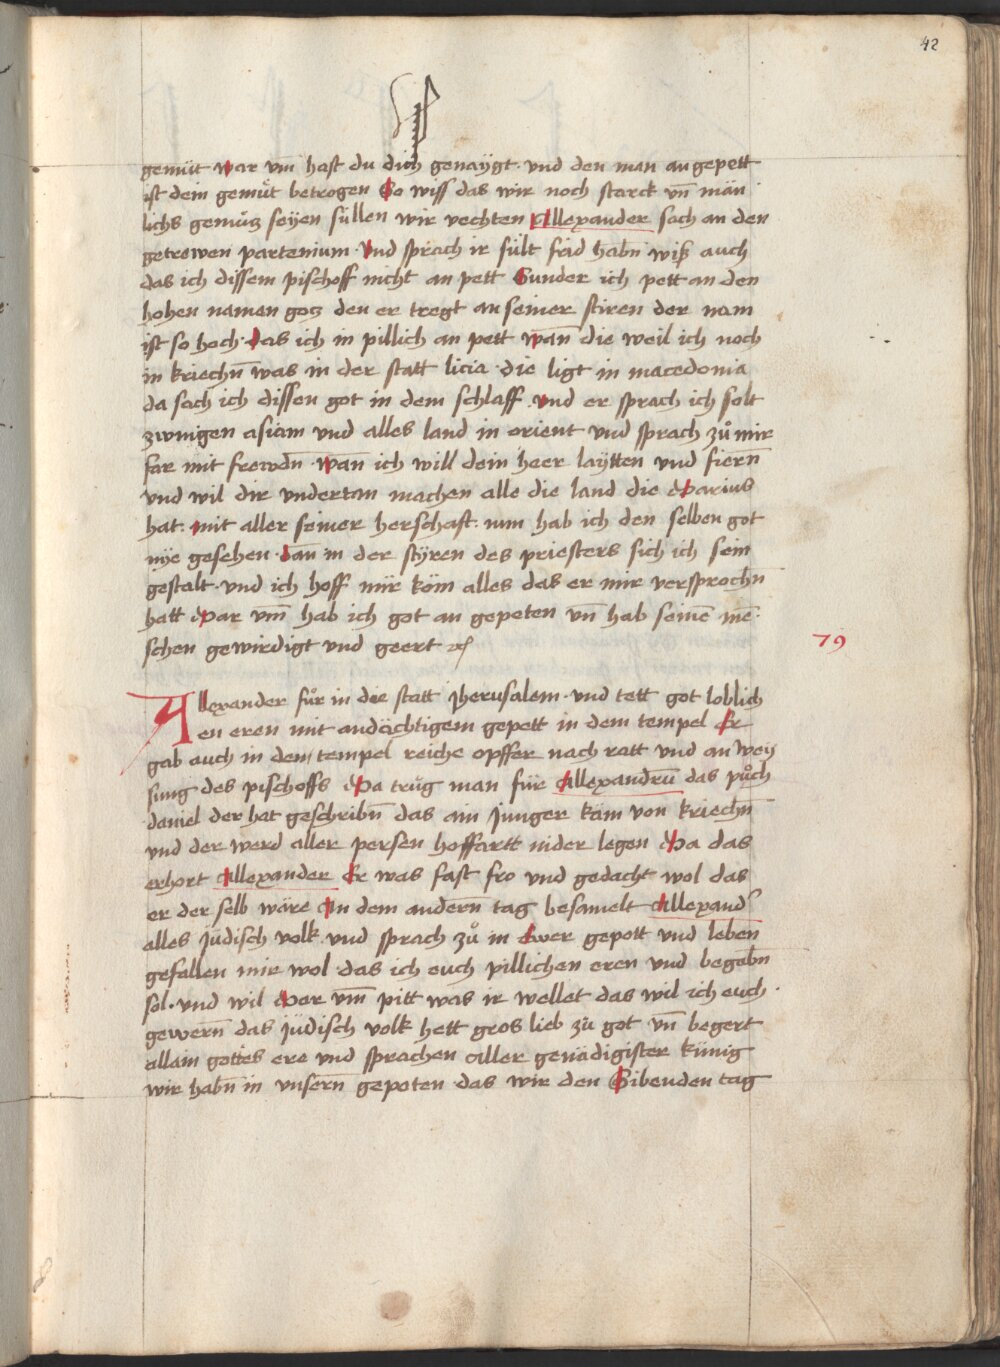 42
gemüt war vm̄ hast du dich genaÿgt · vnd den man an gepett
ist dein gemüt betrogen So wiss das wir noch starck vn̄ män
lichs gemütz seÿen süllen wir vechten Allexander sach an den
getrewen partenium · Vnd sprach ir sült frid habn wiß auch
das ich dissem pischoff nicht an pett Sunder ich pett an den
hohen namen gotz den er tregt an seiner stiren der nam
ist so hoch · das ich in pillich an pett wan̄ die weil ich noch
in kriechn̄ was in der statt licia · die ligt in macedonia
da sach ich dissen got in dem schlaff · vnd er sprach ich solt
zwingen asiam vnd alles land in orient vnd sprach zů mir
far mit frewdn̄ · wan̄ ich will dein heer laÿtten vnd fiern̄
vnd wil dir vndertan machen alle die land die Darius
hat · mit aller seiner herschafft · nun hab ich den selben got
nÿe gesehen · dan̄ in der stÿren des priesters sich ich sein
gestalt · vnd ich hoff mir köm alles das er mir versprochn̄
hatt Dar vm̄ hab ich got an gepeten vn̄ hab seinē mē
schen gewirdigt vnd geert ⁊c
79
Allexander fůr in die statt Jherusalem · vnd tett got loblich
en eren mit andächtigem gepett in dem tempel Er
gab auch in dem tempel reiche opffer nach ratt vnd an weÿ
sung des pischoffs Da trůg man für Allexandrū das půch
daniel der hat geschribn̄ das ain Junger käm von kriechn̄
vnd der werd aller persen hoffartt nider legen Da das
erhort Allexander Er was fast fro vnd gedacht wol das
er der selb wäre An dem andern̄ tag besamelt Allexand
alles Jüdisch volk vnd sprach zů in Ewer gepott vnd leben
gefallen mir wol · das ich euch pillichen eren vnd begabn̄
sol · vnd wil Dar vm̄ pitt was ir wellet das wil ich euch ·
gewern̄ das Jüdisch volk hett gros lieb zů got vn̄ begert
allain gottes ere vnd sprachen Aller genädigister künig
wir habn̄ in vnsern̄ gepoten das wir den Sibenden tag